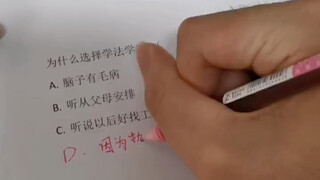 为什么选择学法学
A. 脑子有毛病
B. 听从父母安排
C. 听说以后好找工
D. 因为执